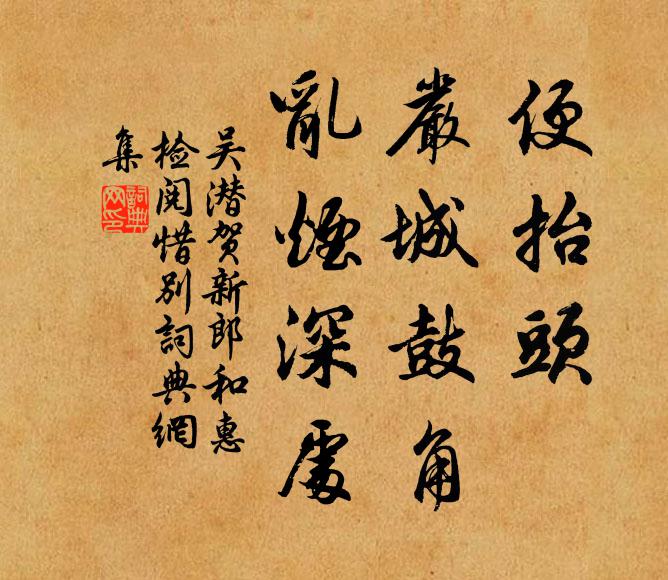 便抬頭
嚴城鼓角
亂煙深處
吴潜贺新郎和惠
检阅惜别詞典網
集
詞典網印